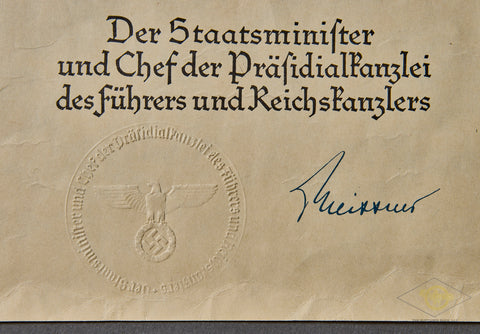 Der Staatsminister
und Chef der Präsidialkanzlei
des Führers und Reichskanzlers
Der Staatsminister und Chef der Präsidialkanzlei des Führers und Reichskanzlers
Meissner